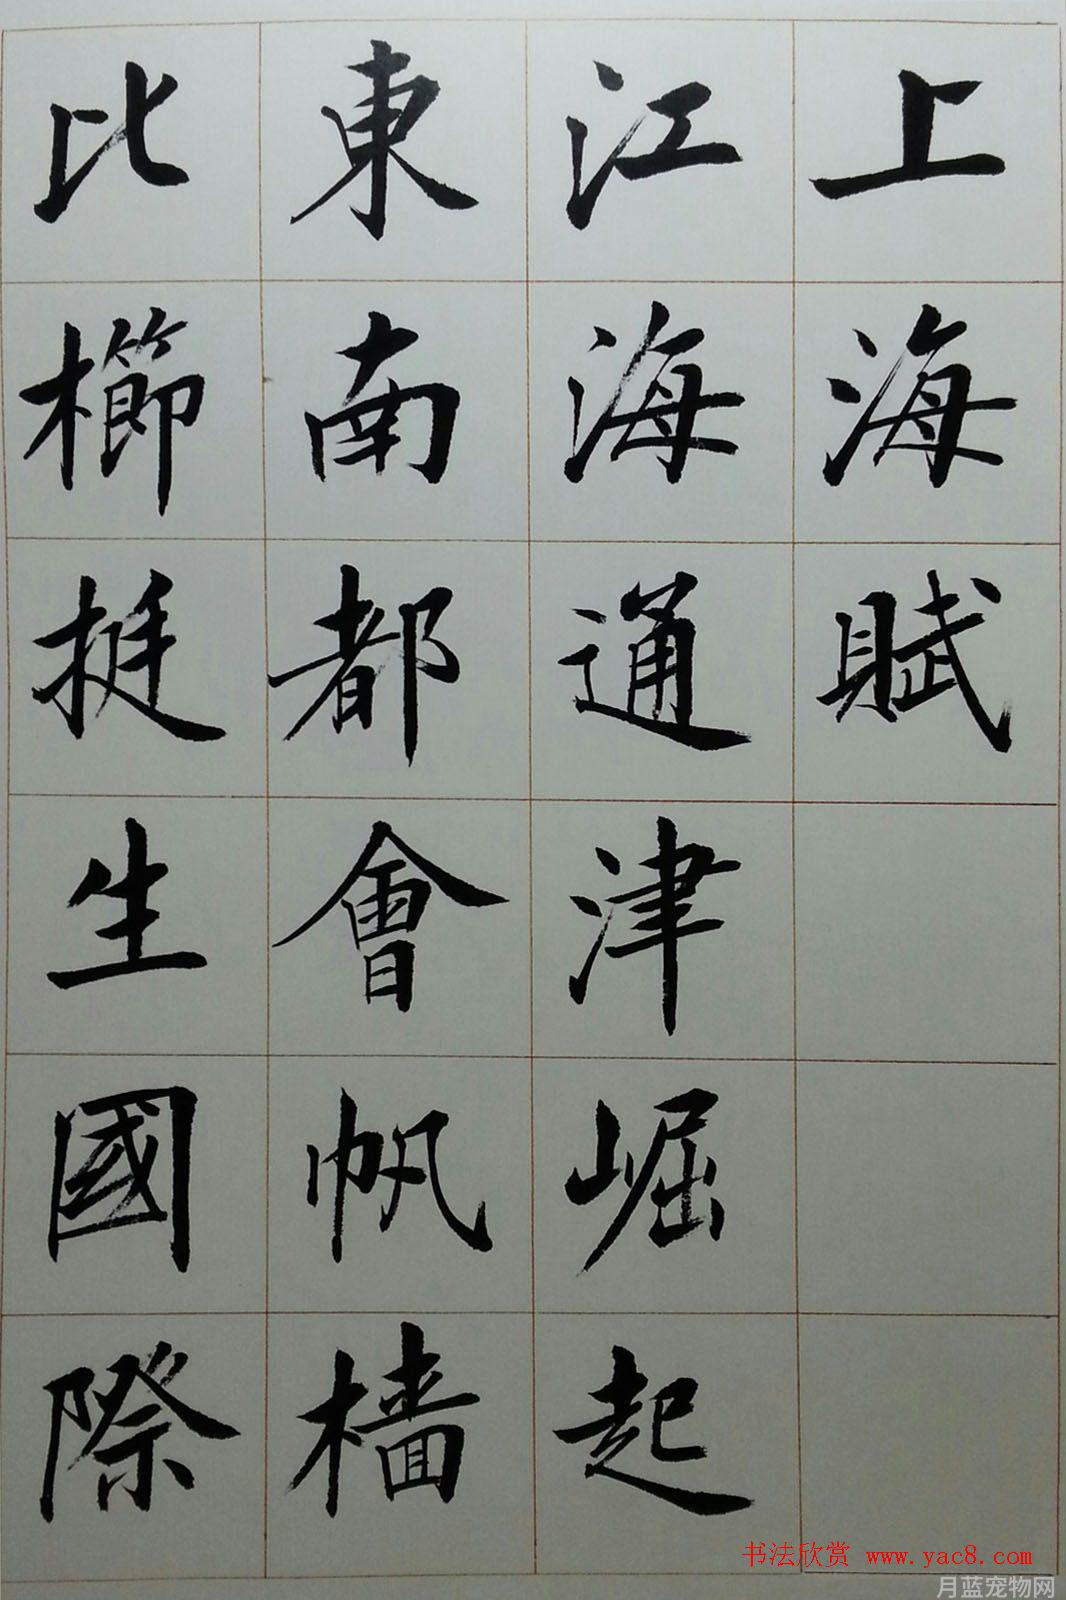 上海賦
江海通津崛起
東南都會帆檣
比櫛挺生國際
书法欣赏 www.yac8.com
月蓝宠物网